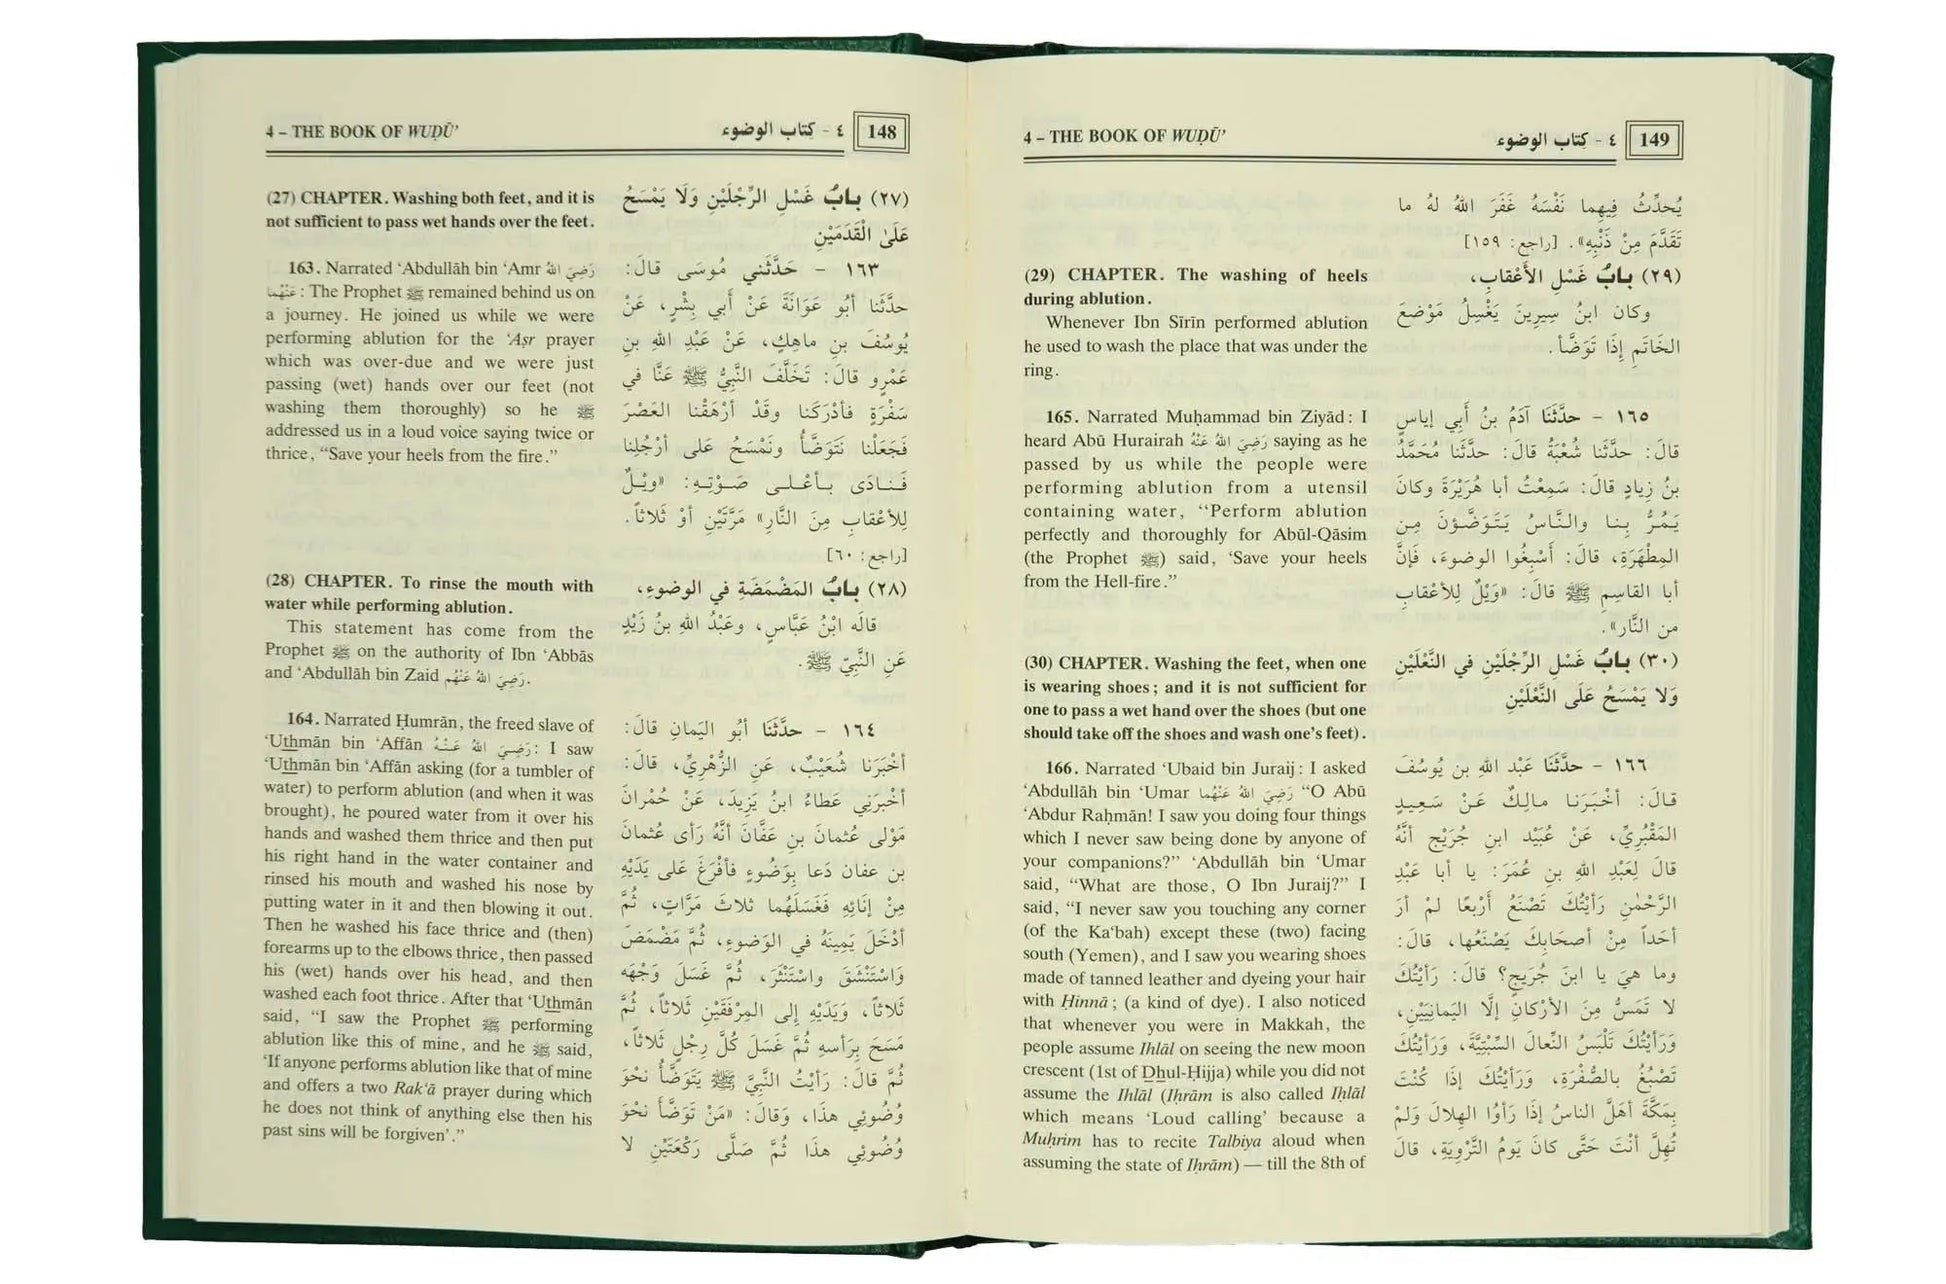 4 – THE BOOK OF WUḌŪ’
٤ - كتاب الوضوء
148
(27) CHAPTER. Washing both feet, and it is
not sufficient to pass wet hands over the feet.
163. Narrated ‘Abdullāh bin ‘Amr رَضِيَ اللهُ
عَنْهُما: The Prophet ﷺ remained behind us on
a journey. He joined us while we were
performing ablution for the ‘Aṣr prayer
which was over-due and we were just
passing (wet) hands over our feet (not
washing them thoroughly) so he ﷺ
addressed us in a loud voice saying twice or
thrice, “Save your heels from the fire.”
(28) CHAPTER. To rinse the mouth with
water while performing ablution.
This statement has come from the
Prophet ﷺ on the authority of Ibn ‘Abbās
and ‘Abdullāh bin Zaid رَضِيَ اللهُ عَنْهُم.
164. Narrated Ḥumrān, the freed slave of
‘Uthmān bin ‘Affān رَضِيَ اللهُ عَنْهُ: I saw
‘Uthmān bin ‘Affān asking (for a tumbler of
water) to perform ablution (and when it was
brought), he poured water from it over his
hands and washed them thrice and then put
his right hand in the water container and
rinsed his mouth and washed his nose by
putting water in it and then blowing it out.
Then he washed his face thrice and (then)
forearms up to the elbows thrice, then passed
his (wet) hands over his head, and then
washed each foot thrice. After that ‘Uthmān
said, “I saw the Prophet ﷺ performing
ablution like this of mine, and he ﷺ said,
‘If anyone performs ablution like that of mine
and offers a two Rak‘ā prayer during which
he does not think of anything else then his
past sins will be forgiven’.”
(٢٧) بابُ غَسْلِ الرِّجْلَيْنِ وَلَا يَمْسَحُ
عَلىٰ الْقَدَمَيْنِ
١٦٣ - حَدَّثَني مُوسَى قالَ:
حدَّثَنا أبُو عَوَانَةَ عَنْ أبي بِشْرٍ، عَنْ
يُوسُفَ بنِ ماهِكٍ، عَنْ عَبْدِ اللهِ بنِ
عَمْرٍو قالَ: تَخَلَّفَ النَّبيُّ ﷺ عَنَّا في
سَفْرَةٍ فأدْرَكَنا وقَدْ أرْهَقْنا العَصْرَ
فَجَعَلْنا نَتَوَضَّأُ ونَمْسَحُ عَلى أرْجُلِنا
فَنادَى بأعْلى صَوْتِهِ: «ويْلٌ
لِلأعْقابِ مِنَ النَّارِ» مَرَّتَيْنِ أوْ ثَلاثاً.
[راجع: ٦٠]
(٢٨) بابُ المَضْمَضَةِ في الوضوءِ،
قالَه ابْنُ عَبَّاسٍ، وعَبْدُ اللهِ بنُ زَيْدٍ
عَنِ النَّبِيِّ ﷺ.
١٦٤ - حدَّثَنَا أبُو اليَمانِ قالَ:
أخْبَرَنا شُعَيْبٌ، عَنِ الزُّهْرِيِّ، قالَ:
أخْبَرَني عَطاءُ ابنُ يَزِيدَ، عَنْ حُمْرانَ
مَوْلى عُثمانَ بنِ عَفَّانَ أنَّهُ رَأى عُثمانَ
بن عفان دَعا بِوَضُوءٍ فأفْرَغَ عَلى يَدَيْهِ
مِنْ إنَائِهِ فَغَسَلَهُما ثلاثَ مَرَّاتٍ، ثُمَّ
أدْخَلَ يَمِينَهُ في الوَضوءِ، ثُمَّ مَضْمَضَ
وَاسْتَنْشَقَ واسْتَنْثَرَ، ثُمَّ غَسَلَ وَجْهَه
ثَلاثاً، وَيَدَيْهِ إلى المِرْفَقَيْنِ ثَلاثاً، ثُمَّ
مَسَحَ بِرَأسهِ ثُمَّ غَسَلَ كُلَّ رِجْلٍ ثَلاثاً،
ثُمَّ قالَ: رَأيْتُ النَّبيَّ ﷺ يَتَوَضَّأُ نحْوَ
وُضُوئِي هذَا، وَقالَ: «مَنْ تَوَضَّأَ نحْوَ
وُضُوئِي هذَا ثُمَّ صَلَّى رَكْعَتَيْنِ لا
4 – THE BOOK OF WUḌŪ’
٤ - كِتاب الوضوء
149
(29) CHAPTER. The washing of heels
during ablution.
Whenever Ibn Sīrīn performed ablution
he used to wash the place that was under the
ring.
165. Narrated Muḥammad bin Ziyād: I
heard Abū Hurairah رَضِيَ اللهُ عَنْهُ saying as he
passed by us while the people were
performing ablution from a utensil
containing water, “Perform ablution
perfectly and thoroughly for Abūl-Qāsim
(the Prophet ﷺ) said, ‘Save your heels
from the Hell-fire.”
(30) CHAPTER. Washing the feet, when one
is wearing shoes; and it is not sufficient for
one to pass a wet hand over the shoes (but one
should take off the shoes and wash one’s feet).
166. Narrated ‘Ubaid bin Juraij: I asked
‘Abdullāh bin ‘Umar رَضِيَ اللهُ عَنْهُما “O Abū
‘Abdur Raḥmān! I saw you doing four things
which I never saw being done by anyone of
your companions?” ‘Abdullāh bin ‘Umar
said, “What are those, O Ibn Juraij?” I
said, “I never saw you touching any corner
(of the Ka‘bah) except these (two) facing
south (Yemen), and I saw you wearing shoes
made of tanned leather and dyeing your hair
with Ḥinnā; (a kind of dye). I also noticed
that whenever you were in Makkah, the
people assume Ihlāl on seeing the new moon
crescent (1st of Dhul-Ḥijja) while you did not
assume the Ihlāl (Iḥrām is also called Iḥlāl
which means ‘Loud calling’ because a
Muḥrim has to recite Talbiya aloud when
assuming the state of Iḥrām) — till the 8th of
يُحدِّثُ فِيهِما نَفْسَهُ غَفَرَ اللهُ لهُ ما
تَقَدَّمَ مِنْ ذَنْبِهِ». [راجع: ١٥٩]
(٢٩) بابُ غَسْلِ الأعْقابِ،
وكان ابنُ سِيرِينَ يَغْسِلُ مَوْضعَ
الخَاتَمِ إذَا تَوَضَّأ.
١٦٥ - حدَّثَنَا آدَمُ بنُ أبي إياسٍ
قالَ: حدَّثَنا شُعْبَةُ قالَ: حدَّثَنا مُحَمَّدُ
بنُ زِيادٍ قالَ: سَمِعْتُ أبا هُرَيْرَةَ وكانَ
يَمُرُّ بِنا والنَّاسُ يَتَوَضَّؤنَ مِنَ
المِطْهَرَةِ، قالَ: أسْبِغُوا الوضوءَ، فَإنَّ
أبا القاسِمِ ﷺ قالَ: «وَيْلٌ لِلأعْقابِ
من النَّارِ».
(٣٠) بابُ غَسْلِ الرِّجْلَيْنِ في النَّعْلَيْنِ
وَلا يَمْسَحُ عَلَى النَّعْلَيْنِ
١٦٦ - حدَّثَنا عَبْد اللهِ بن يُوسُفَ
قالَ: أخْبَرَنا مالِكٌ عَنْ سَعِيدٍ
المَقْبُرِيِّ، عَنْ عُبَيْد ابنِ جُرَيْجٍ أنَّهُ
قالَ لِعَبْدِ اللهِ بنِ عُمَرَ: يا أبا عَبْدِ
الرَّحْمٰنِ رَأيْتُكَ تَصْنَعُ أرْبعًا لمْ أرَ
أحَداً مِنْ أصحَابِكَ يَصْنَعُها، قالَ:
وما هيَ يا ابنَ جُرَيجٍ؟ قالَ: رَأيْتُكَ
لا تَمَسُّ مِنَ الأرْكانِ إلَّا اليَمانِيَيْنِ،
وَرَأيْتُكَ تَلْبَسُ النِّعالَ السِّبْتِيَّةَ، وَرَأيْتُكَ
تَصْبُغُ بالصُّفْرَةِ، وَرَأيْتُكَ إذَا كُنْتَ
بِمَكَّةَ أهَلَّ الناسُ إذَا رَأوُا الهِلالَ وَلمْ
تُهِلَّ أنْتَ حَتَّى كانَ يَوْمُ التَّرْوِيَةِ، قالَ